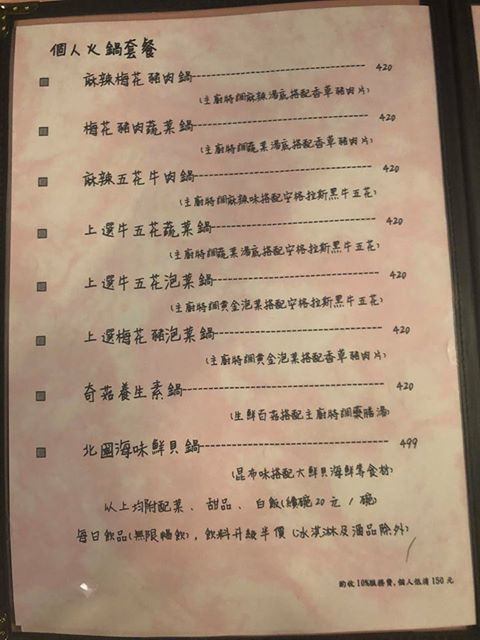 個人火鍋套餐
麻辣梅花豬肉鍋 420
(主廚特調麻辣湯底搭配香草豬肉片)
梅花豬肉蔬菜鍋 420
(主廚特調蔬菜湯底搭配香草豬肉片)
麻辣五花牛肉鍋 420
(主廚特調麻辣味搭配安格拉斯黑牛五花)
上選牛五花蔬菜鍋 420
(主廚特調蔬菜湯底搭配安格拉斯黑牛五花)
上選牛五花泡菜鍋 420
(主廚特調黃金泡菜搭配安格拉斯黑牛五花)
上選梅花豬泡菜鍋 420
(主廚特調黃金泡菜搭配香草豬肉片)
奇菇養生素鍋 420
(生鮮百菇搭配主廚特調藥膳湯)
北國海味鮮貝鍋 499
(昆布味搭配大鮮貝海鮮等食材)
以上均附配菜、甜品、白飯(續碗20元/碗)
每日飲品(無限暢飲),飲料升級半價(冰淇淋及酒品除外)
酌收10%服務費,個人低消150元